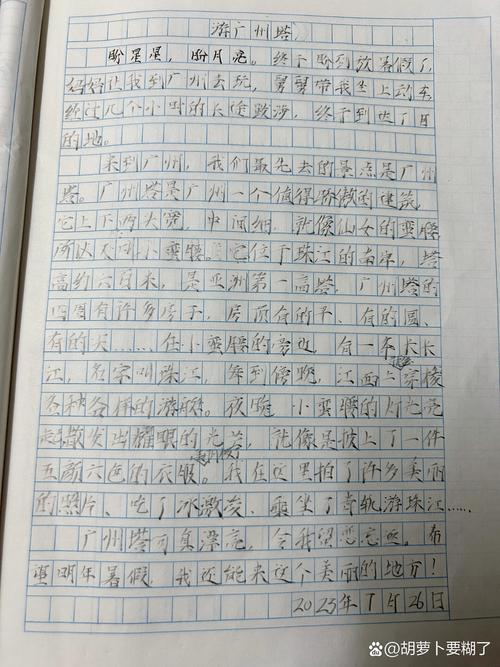 游广州塔
盼星星，盼月亮。终于盼到放暑假了，
妈妈让我到广州去玩，舅舅带我坐上动车，
经过几个小时的长途跋涉，终于到达了目
的地。
来到广州，我们最先去的景点是广州
塔。广州塔是广州一个值得骄傲的建筑，
它上下两头宽，中间细，就像仙女的蛮腰
所以又叫小蛮腰。它位于珠江的南岸，塔
高约六百米，是亚洲第一高塔，广州塔的
四周有许多房子，房顶有的平、有的圆、
有的尖……在小蛮腰的旁边，有一条长长
江，名字叫珠江，每到傍晚，江面上穿梭
各种各样的游艇。夜晚，小蛮腰的灯光亮
起散发出耀眼的光芒，就像是披上了一件
五颜六色的衣服。我在这里拍了许多美丽
的照片、吃了冰激凌、乘坐了有轨游珠江……
广州塔可真漂亮，令我留恋忘返。希
望明年暑假，我还能来这个美丽的地方！
2023年7月26日
胡萝卜要糊了